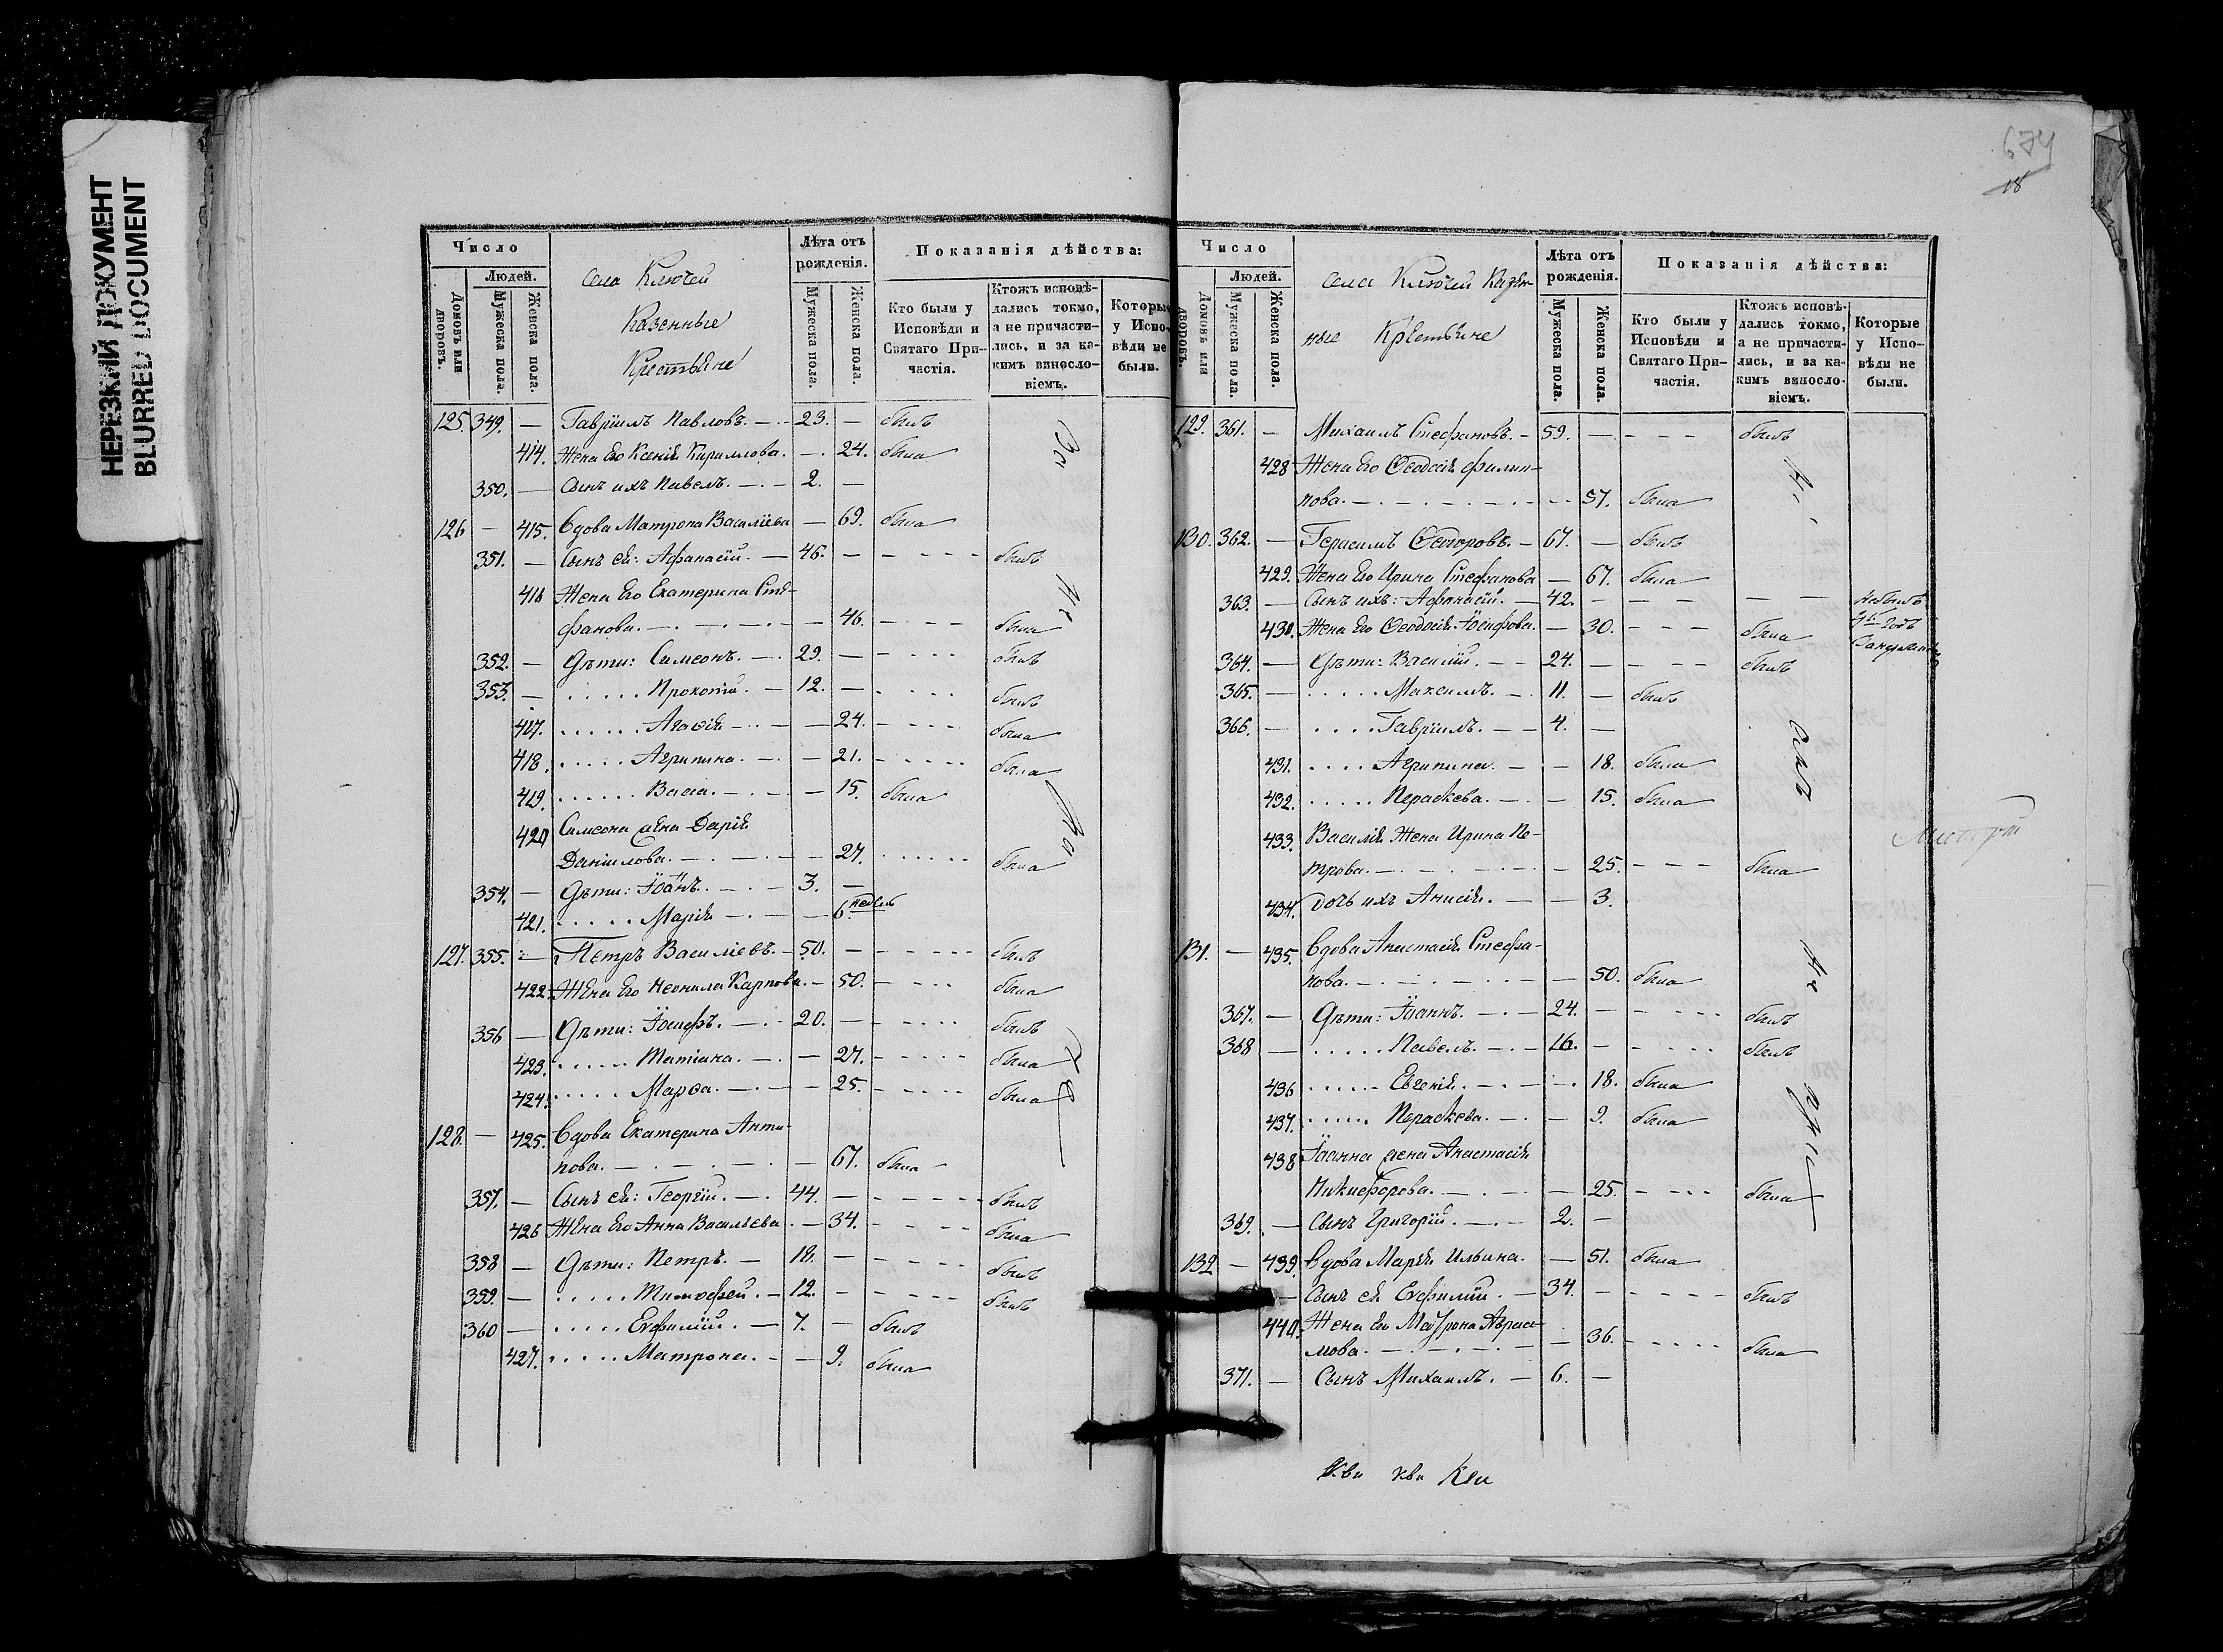 НЕРЕЗКИЙ ДОКУМЕНТ
BLURRED DOCUMENT
Число
Людей.
Домовъ или дворовъ.
Мужеска пола.
Женска пола.
села Ключей
Казенные
Крестьяне
Лѣта отъ рожденія.
Мужеска пола.
Женска пола.
Показанія дѣйства:
Кто были у Исповѣди и Святаго При-частія.
Ктожъ исповѣ-дались токмо, а не причасти-лись, и за ка-кимъ винослo-віемъ.
Которые у Испо-вѣди не были.
125. 349. — Гавріилъ Павловъ. — 23. — былъ
414. Жена Его Ксенія Кириллова. — 24. была
350. — Сынъ ихъ Павелъ. — 2. —
126 — 415. Вдова Матрона Василіева — 69. была
351. — Сынъ ея: Афанасій. — 46. — былъ
416 Жена Его Екатерина Сте-
фанова. — 46. — была
352. — Дѣти: Симеонъ. — 29. — былъ
353. — Прокопій. — 12. — былъ
417. Агафія — 24. — была
418. Агрипина. — 21. — была
419. Васса. — 15. была
420 Симеона жена Дарія
Даніилова. — 27. была
354. — Дѣти: Іоаннъ. — 3. —
421. Марія — 6. недѣль
127. 355. — Петръ Василіевъ. — 50. — былъ
422. Жена Его Неонила Карпова. — 50. — была
356 — Дѣти: Іосифъ. — 20. — былъ
423. Татіана. — 27. — была
424. Марѳа. — 25. — была
128. — 425. Вдова Екатерина Анти-
пова. — 67. была
357. — Сынъ ея: Георгій. — 44. — былъ
426 Жена Его Анна Васильева. — 34. — была
358 — Дѣти: Петръ. — 18. — былъ
359. — Тимофей. — 12. — былъ
360 — Евфимій. — 7. — былъ
427. Матрона. — 9. была
За
не
674
18
Число
Людей.
Домовъ или дворовъ.
Мужеска пола.
Женска пола.
села Ключей Казен
ные Крестьяне
Лѣта отъ рожденія.
Мужеска пола.
Женска пола.
Показанія дѣйства:
Кто были у Исповѣди и Святаго При-частія.
Ктожъ исповѣ-дались токмо, а не причасти-лись, и за ка-кимъ винослo-віемъ.
Которые у Испо-вѣди не были.
129. 361. — Михаилъ Стефановъ. — 59. — былъ
428 Жена Его Ѳеодосія Филип-
пова. — 57. была
130. 362. — Герасимъ Ѳеодоровъ. — 67. — былъ
429. Жена Его Ирина Стефанова — 67. была
363. — Сынъ ихъ: Афанасій. — 42. — небылъ
430. Жена Его Ѳеодосія Іосифова. — 30. — была
364. — Дѣти: Василій. — 24. — былъ
365. — Максимъ. — 11. — былъ
366. — Гавріилъ. — 4. —
431. Агрипина. — 18. была
432. Параскева. — 15. была
433. Василія Жена Ирина Пе-
трова. — 25. — была
434. дочь ихъ Анисія. — 3.
131. — 435. Вдова Анастасія Стефа-
нова. — 50. была
367. — Дѣти: Іоаннъ. — 24. — былъ
368 — Павелъ. — 16. — былъ
436 Евгенія. — 18. была
437. Параскева. — 9. была
438 Іоанна жена Анастасія
Никифорова. — 25. — была
369. — Сынъ Григорій. — 2. —
132 — 439. Вдова Марія Ильина. — 51. была
— Сынъ ея Евфимій. — 34. — былъ
440. Жена Его Матрона Авраа-
мова. — 36. — была
371. — Сынъ Михаилъ. — 6. —